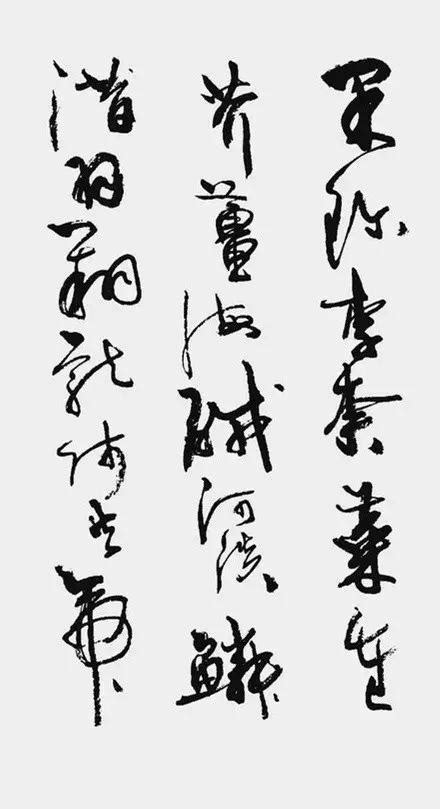 果珍李柰菜重
芥薑海鹹河淡鱗
潛羽翔龍師火帝